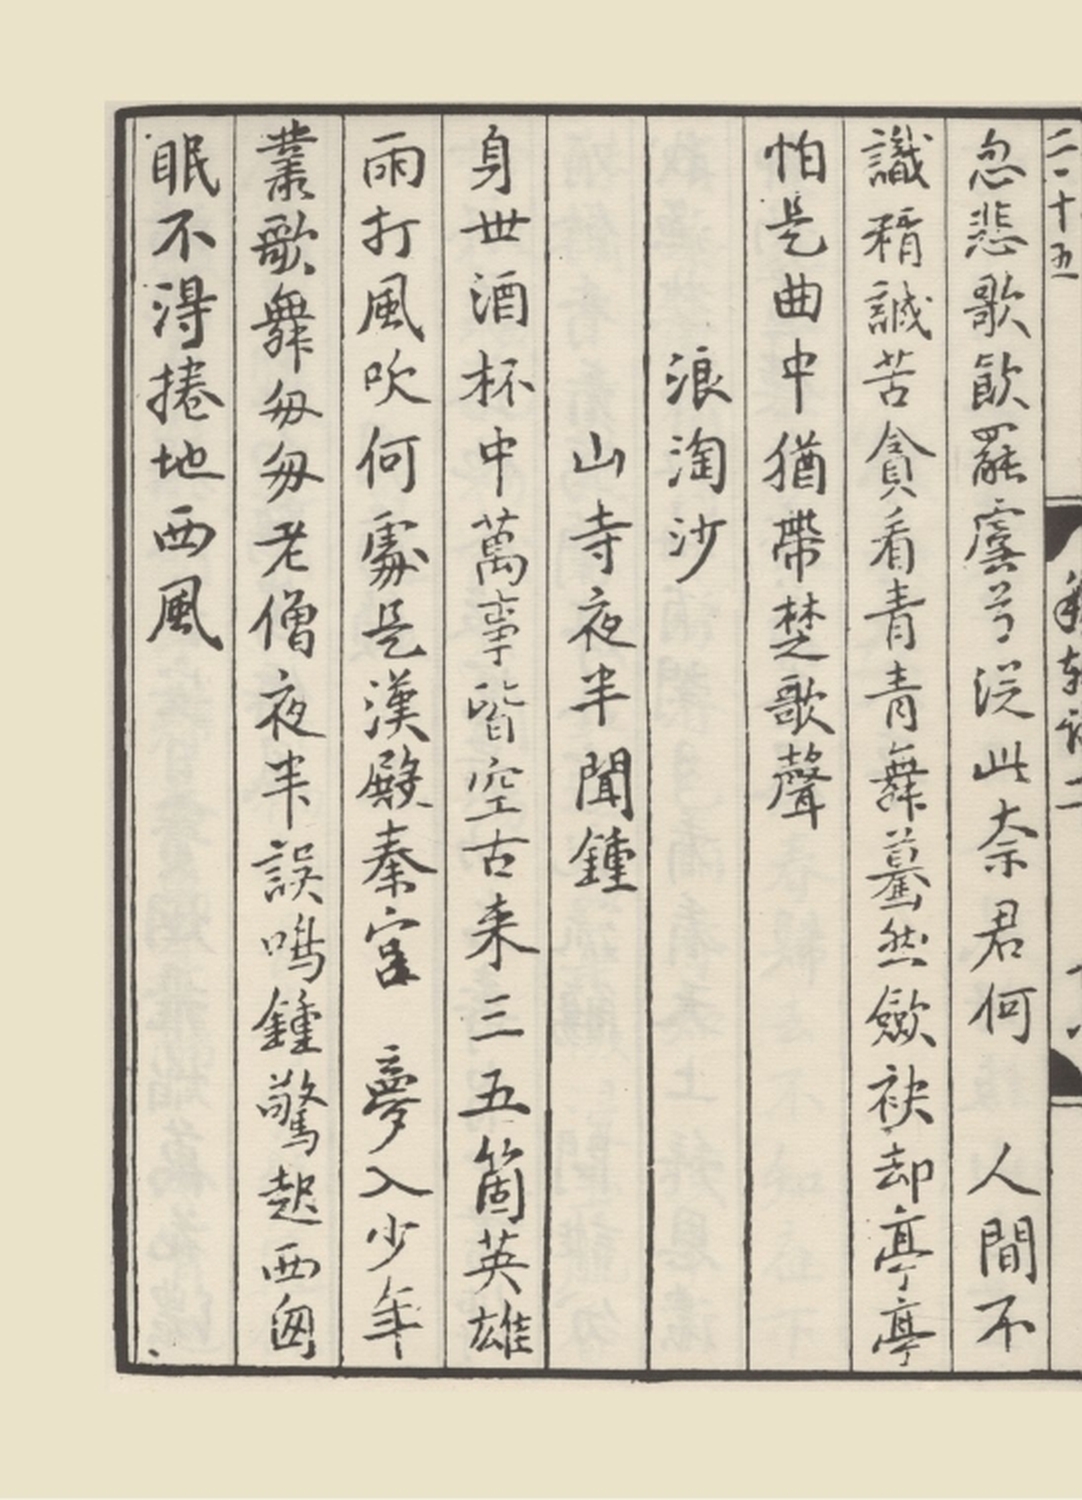 二十五
稼軒詞二
忽悲歌飲罷虞兮從此奈君何 人間不
識精誠苦貪看青青舞驀然斂袂却亭亭
怕是曲中猶帶楚歌聲
浪淘沙
山寺夜半聞鍾
身世酒杯中萬事皆空古来三五箇英雄
雨打風吹何處是漢殿秦宮 夢入少年
叢歌舞匆匆老僧夜半誤鳴鍾驚起西窗
眠不得捲地西風